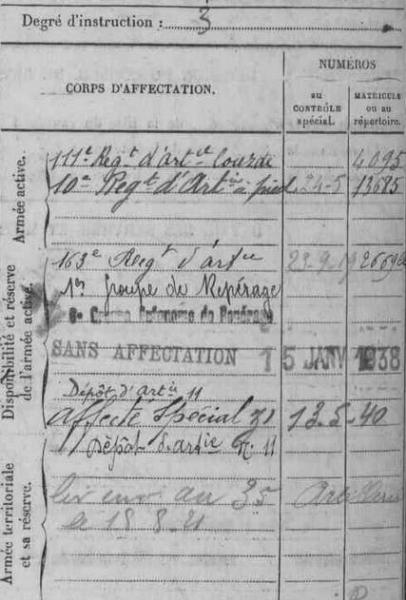 Degré d'instruction : 3
CORPS D'AFFECTATION.
NUMÉROS
au CONTRÔLE spécial.
MATRICULE ou au répertoire.
Armée active.
111e Regt d'artie lourde 4095
10e Regt d'Artie à pied 24-5 13685
Disponibilité et réserve de l'armée active.
163e Regt d'artie 23.9.19
1er Groupe de Repérage
Groupe Autonome de Repérage
SANS AFFECTATION 15 JANV 1938
Dépôt d'artie 11
affecté spécial 13-5-40
Dépôt d'artie 11
Armée territoriale et sa réserve.
au 35